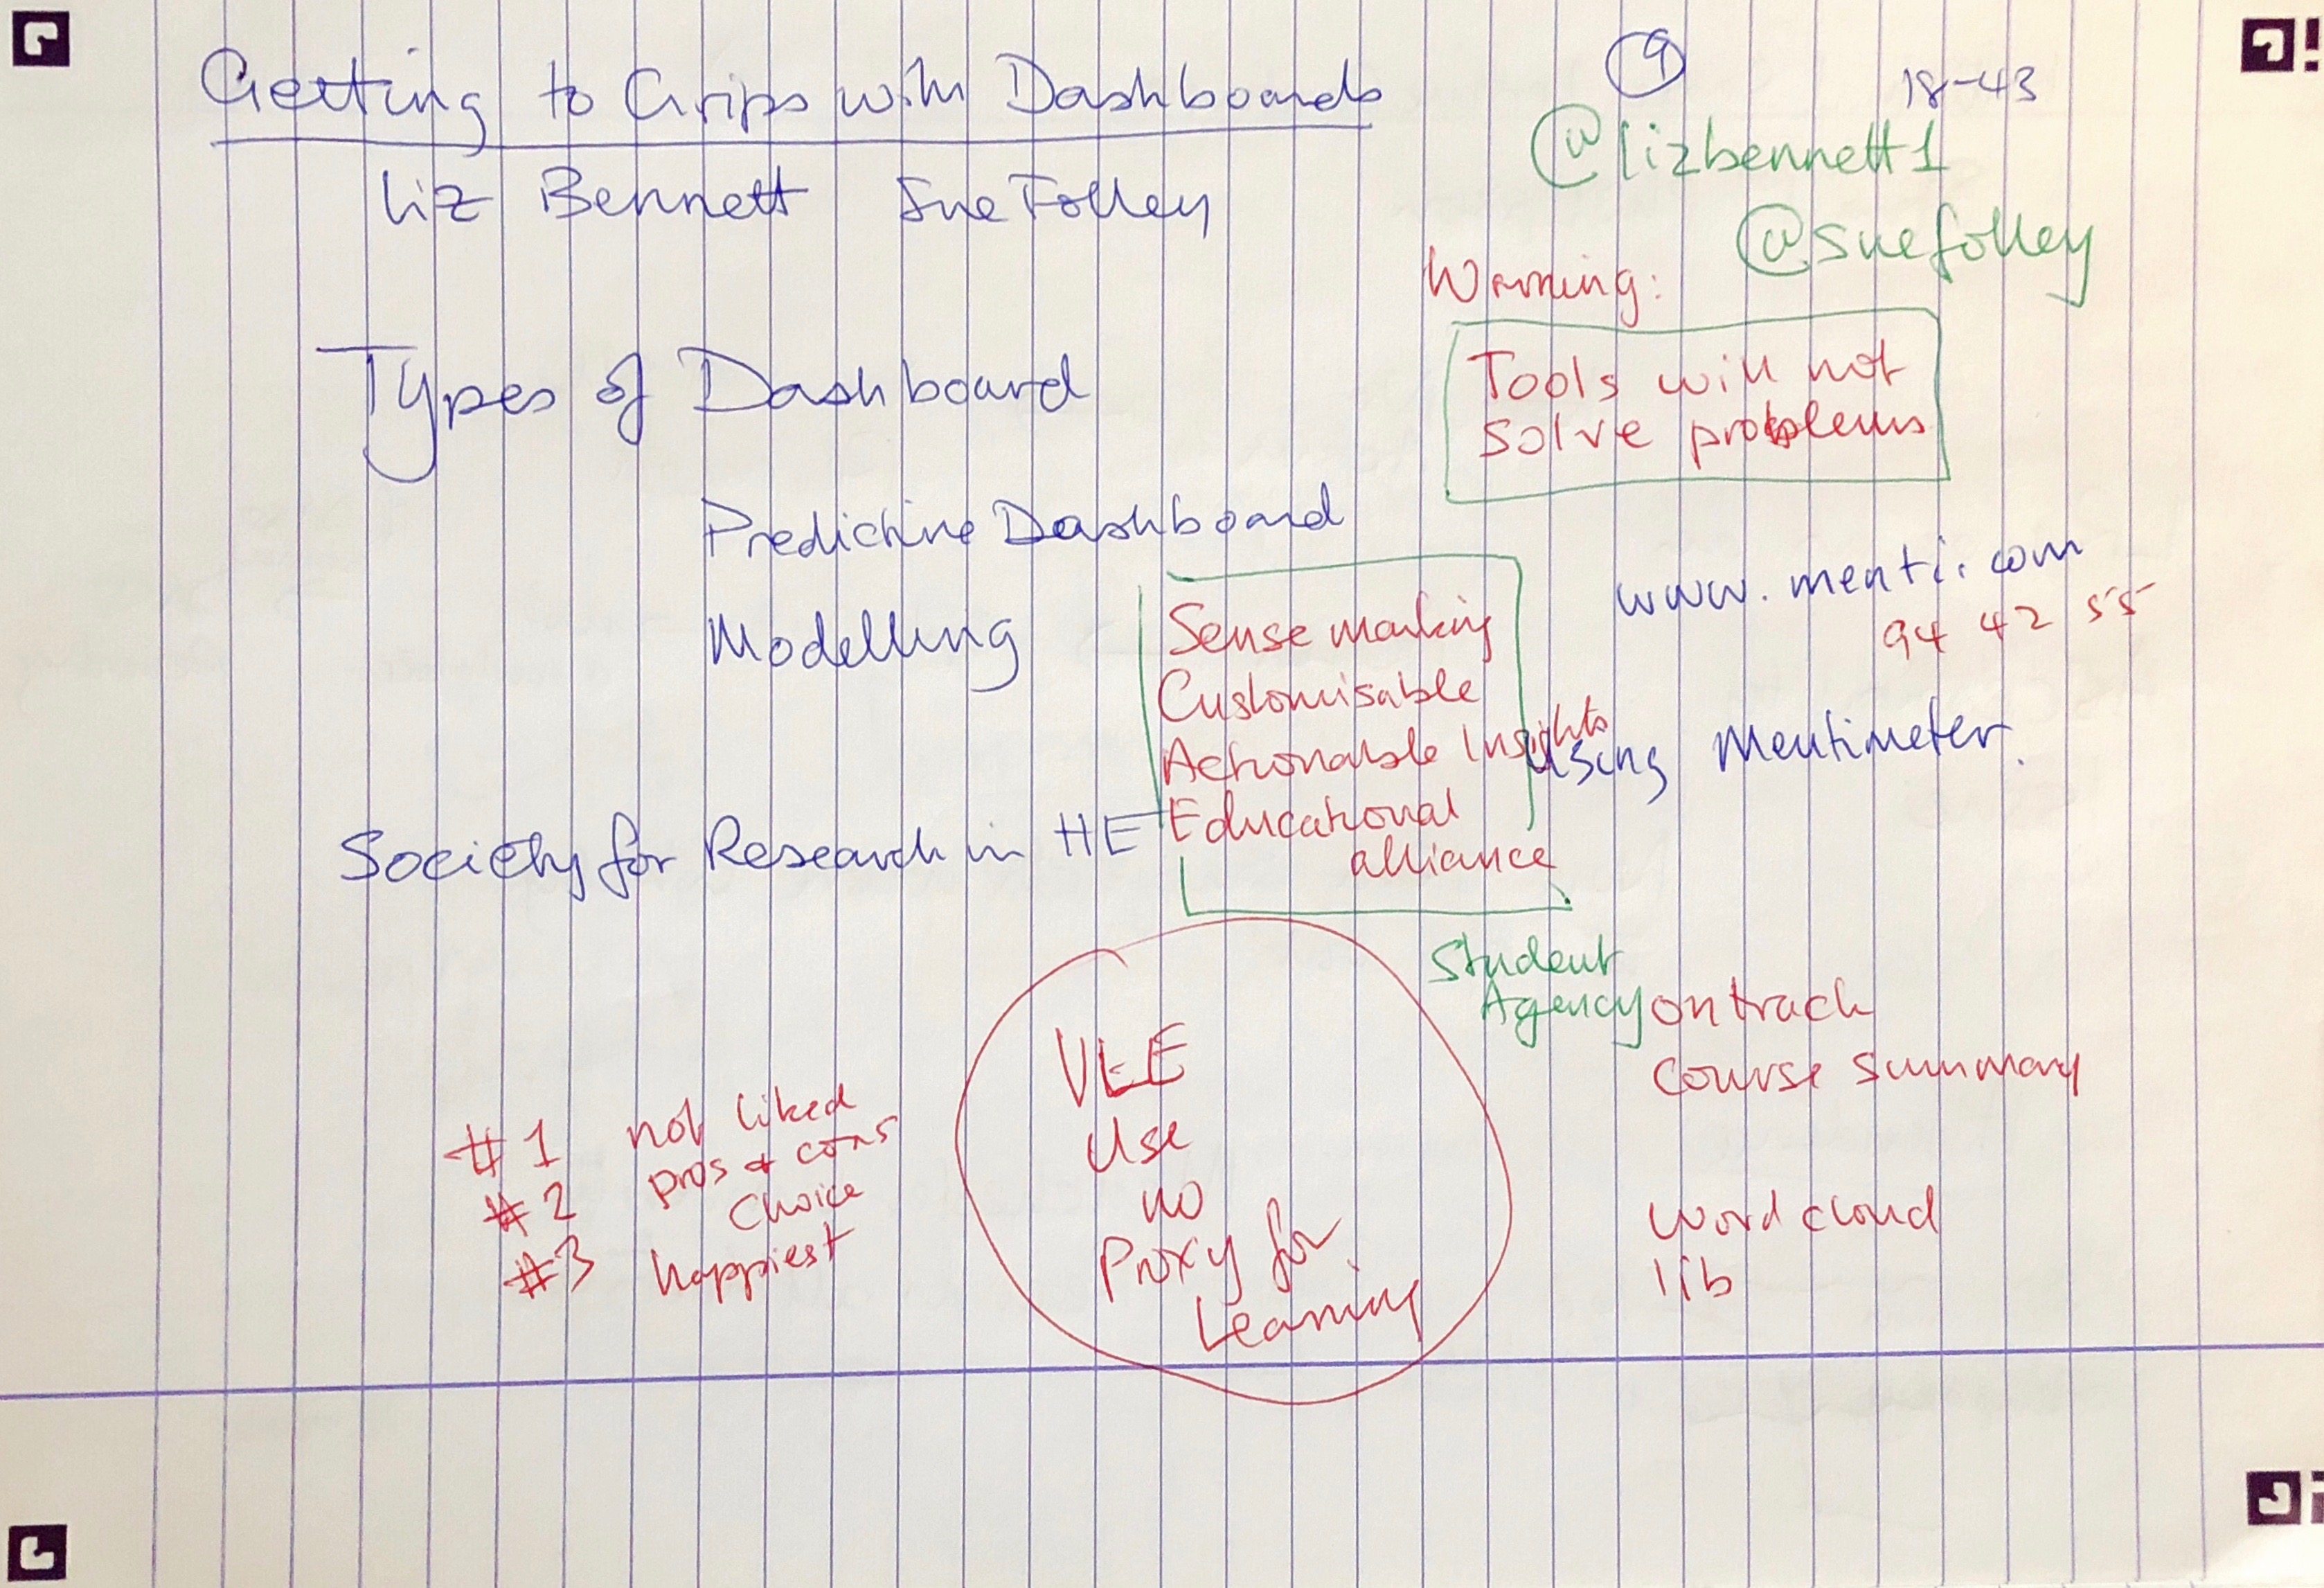 Getting to Grips with Dashboards
9
18-43
Liz Bennett Sue Folley
@lizbennett1
@suefolley
Warning:
Tools will not
solve problems
Types of Dashboard
Predictive Dashboard
Modelling
www.menti.com
94 42 55
Sense making
Customisable
Actionable Insights
Educational
alliance
using Mentimeter.
Society for Research in HE
Student
Agency
on track
course summary
word cloud
lib
VLE
Use
no
Proxy for
Learning
#1 not liked
pros & cons
#2 choice
#3 happiest